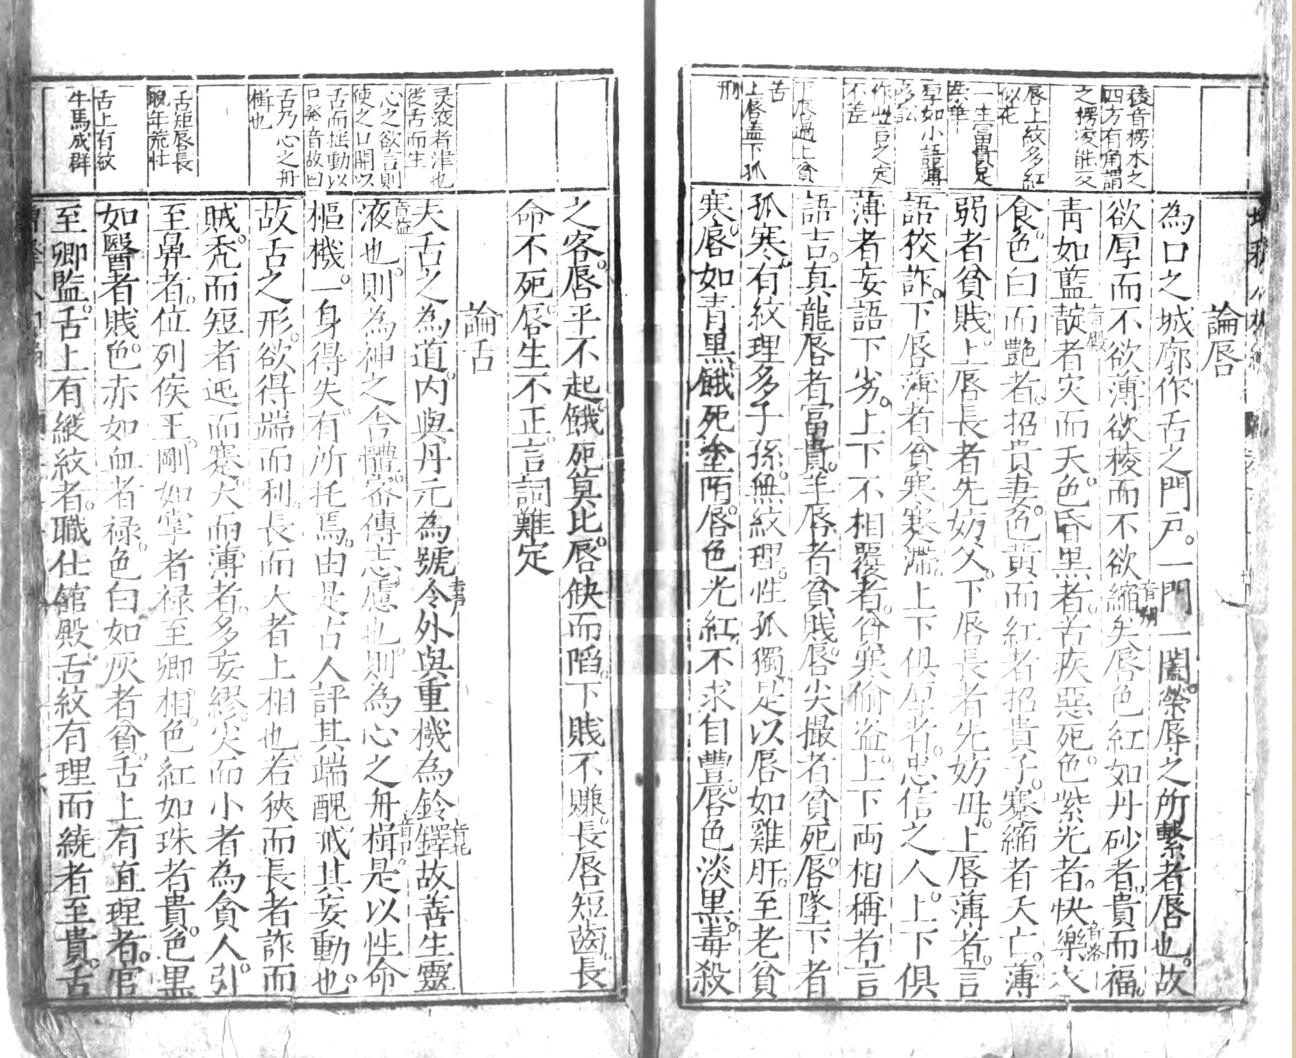 稜音楞木之
四方有角謂
之楞凌能交
唇上紋多紅
似花
一生富貴足
榮華
厚如小語薄
多訟
作此言之定
不差
下唇過上貧
苦
上唇蓋下孤
刑
論唇
為口之城廓作舌之門戶。一門一闔。榮辱之所繫者。唇也。故
欲厚而不欲薄欲稜而不欲縮矣。唇色紅如丹砂者。貴而福。
青如藍靛者灾而夭。色昏黑者。苦疾惡死。色紫光者。快樂衣
食。色白而艷者。招貴妻。色黃而紅者招貴子。蹇縮者夭亡。薄
弱者貧賎。上唇長者先妨父。下唇長者先妨母。上唇薄者。言
語狡詐。下唇薄者貧寒蹇滯。上下俱厚者。忠信之人。上下俱
薄者妄語下劣。上下不相覆者。貧寒偷盗。上下両相稱者言
語吉。真龍唇者富貴。羊唇者貧賎。唇尖撮者貧死。唇墜下者
孤寒。有紋理多子孫。無紋理。性孤獨。是以唇如雞肝。至老貧
寒。唇如青黑。餓死塗陌。唇色光紅。不求自豐。唇色淡黒。毒殺
之客。唇平不起。餓死莫比。唇缺而陷。下賎不賺。長唇短齒。長
命不死。唇生不正。言詞難定
灵液者津也
從舌而生
心之欲言則
使之口開以
舌而揺動以
口發音故曰
舌乃心之舟
楫也
舌短唇長
晚年荒壮
舌上有紋
牛馬成群
論舌
夫舌之為道。内與丹元為號令。外與重機為鈴鐸。故善生靈
液也。則為神之舎體。密傳志慮也。則為心之舟楫。是以性命
樞機。一身得失。有所托焉。由是古人評其端醜。戒其妄動也。
故舌之形。欲得端而利。長而大者上相也。若狹而長者詐而
賊。禿而短者迍而蹇。大而薄者。多妄繆。尖而小者為貪人。引
至鼻者。位列侯王。剛如掌者禄至卿相。色紅如珠者貴。色黒
如醫者賎。色赤如血者禄。色白如灰者貧。舌上有直理者。官
至卿監。舌上有縱紋者。職仕舘殿。舌紋有理而繞者至貴。舌